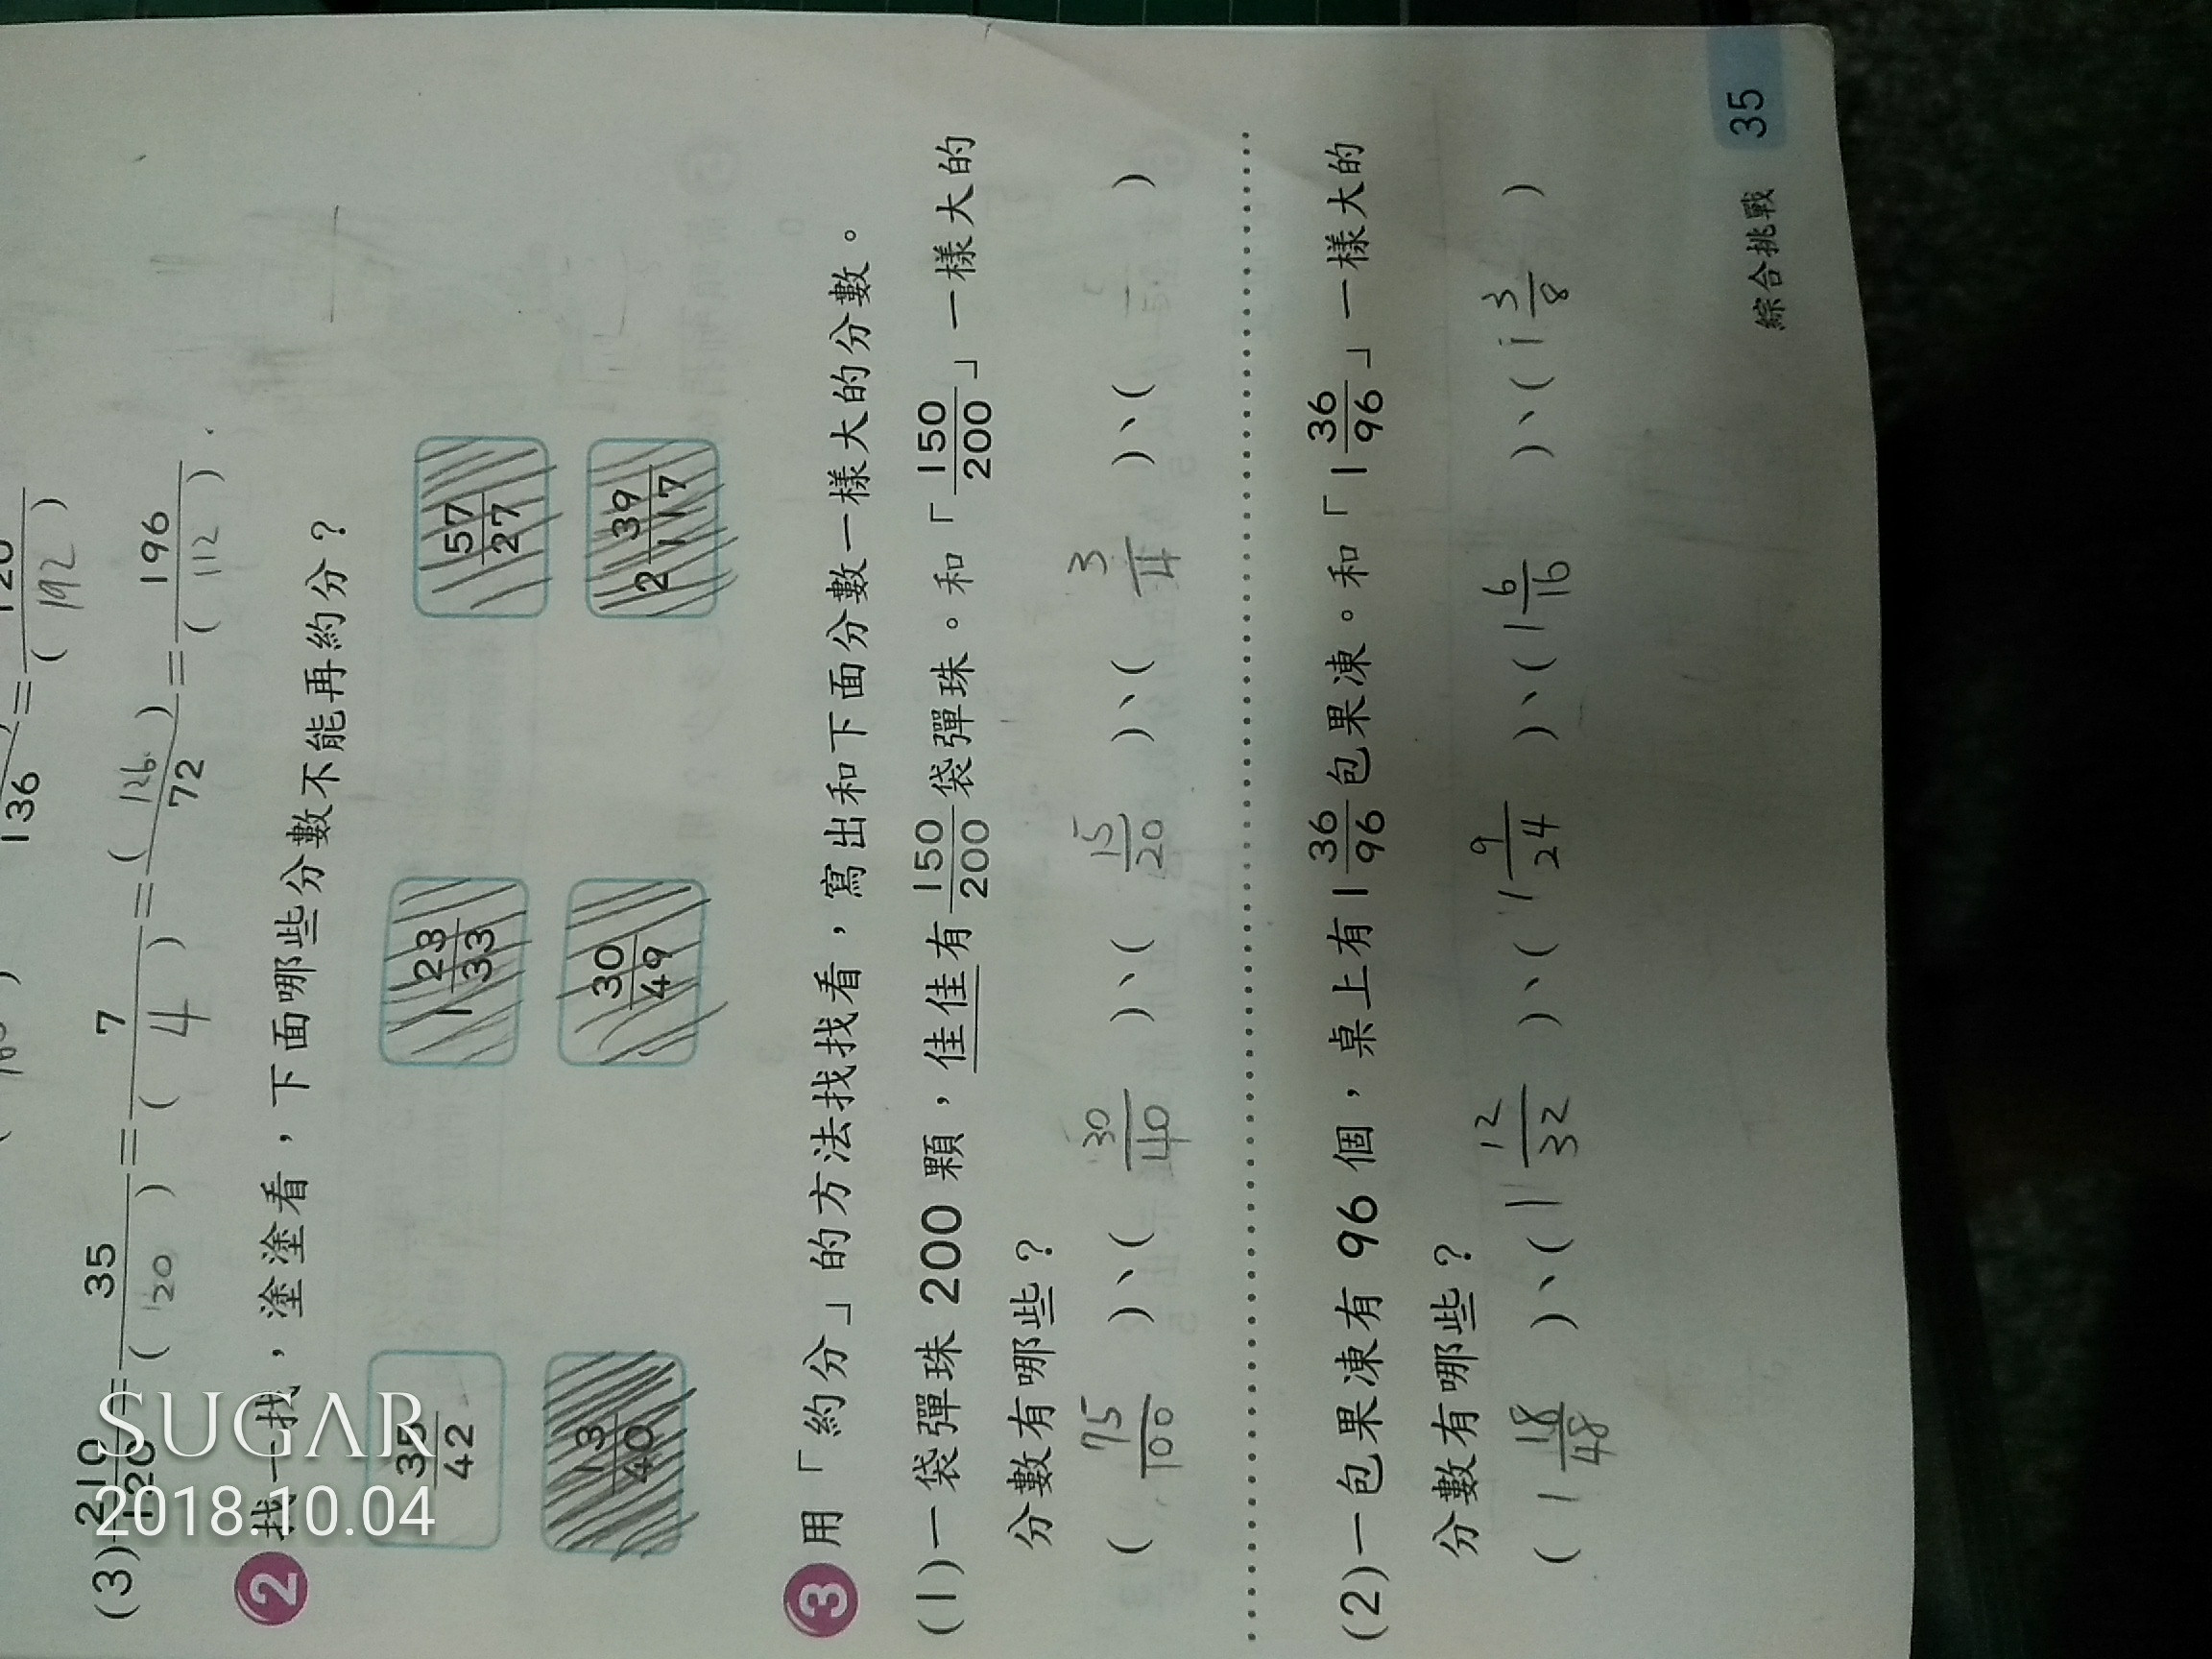 136 ) = 120/( 192 )
(3) 210/120 = 35/( 20 ) = 7/( 4 ) = ( 126 )/72 = 196/( 112 )
2 找一找，塗塗看，下面哪些分數不能再約分？
35/42 1 23/33 57/27
13/40 30/49 2 39/117
3 用「約分」的方法找找看，寫出和下面分數一樣大的分數。
(1)一袋彈珠 200 顆，佳佳有 150/200 袋彈珠。和「150/200」一樣大的
分數有哪些？
( 75/100 )、( 30/40 )、( 15/20 )、( 3/4 )、( )
(2)一包果凍有 96 個，桌上有 1 36/96 包果凍。和「1 36/96」一樣大的
分數有哪些？
( 1 18/48 )、( 1 12/32 )、( 1 9/24 )、( 1 6/16 )、( 1 3/8 )
綜合挑戰 35
SUGAR
2018.10.04